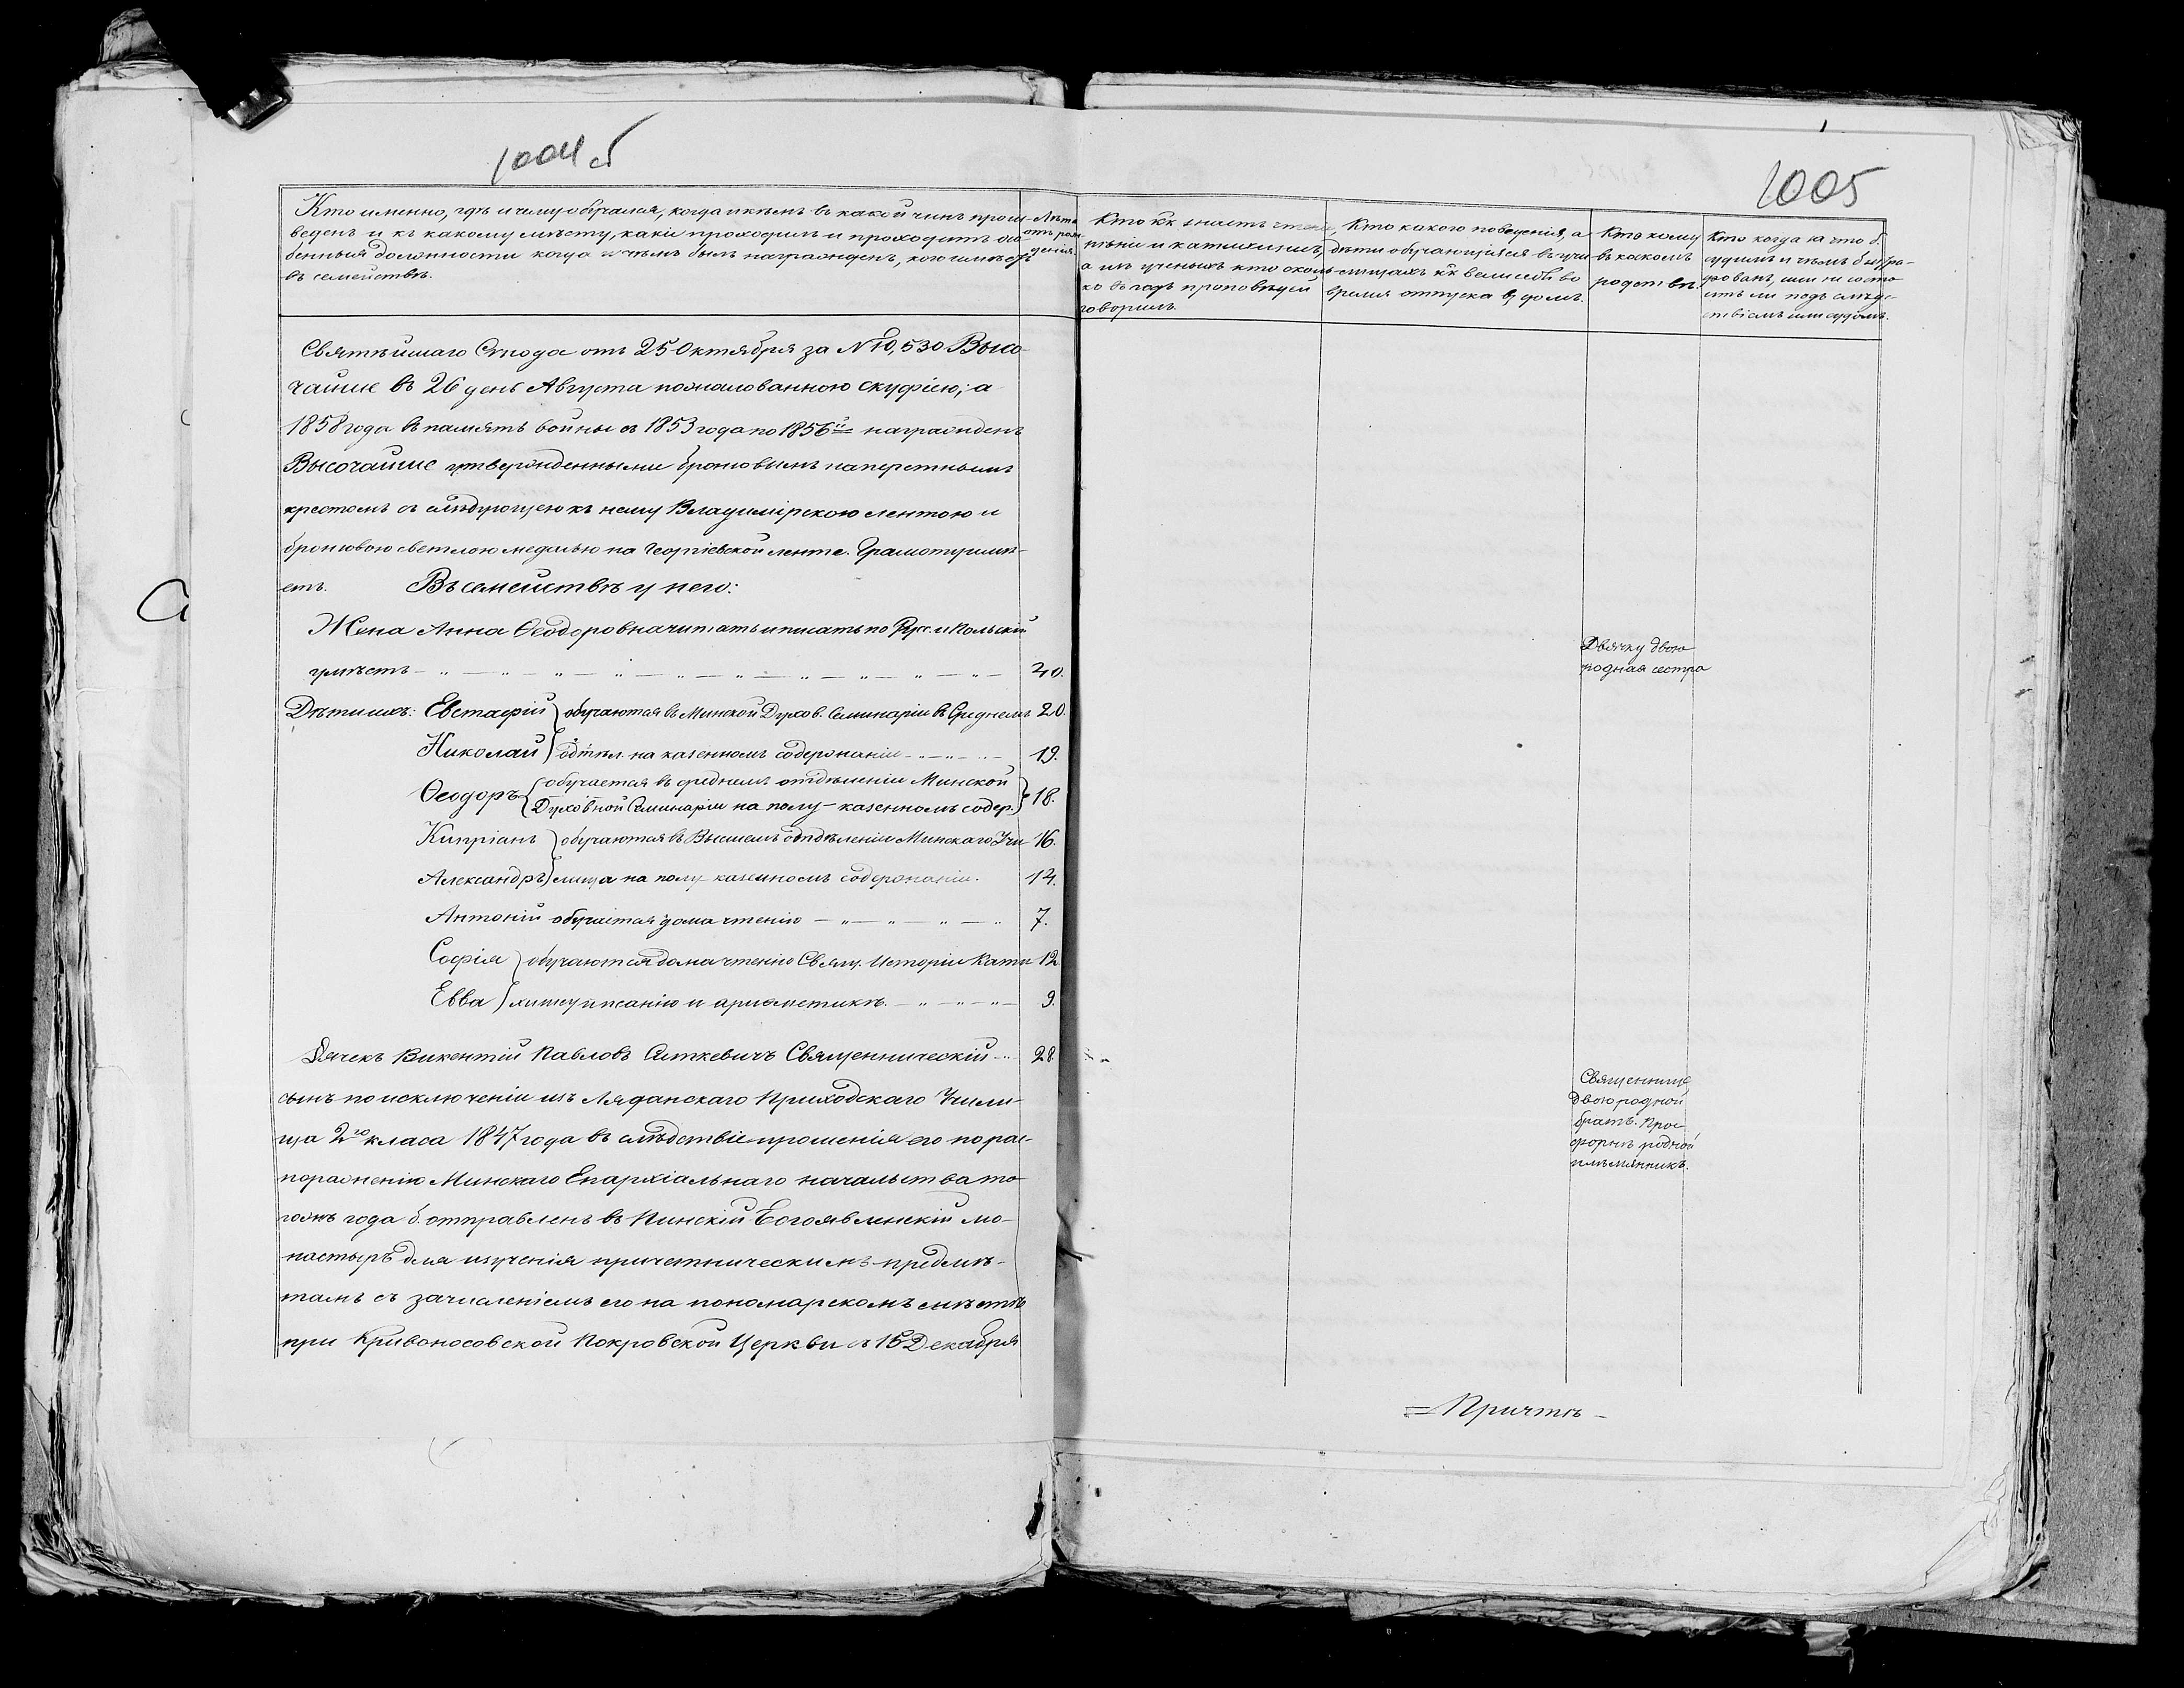 1004 об
1005
Кто именно, гдѣ и чему обучался, когда и кѣмъ въ какой чинъ произ-
веденъ и къ какому мѣсту, какія проходилъ и проходитъ осо-
бенныя должности когда и чѣмъ былъ награжденъ, кого имѣетъ
въ семействѣ.
Лѣта
отъ рож
денія.
Кто к̃к знаетъ чтеніе,
пѣніе и катихизисъ,
а изъ ученыхъ кто сколь-
ко въ годъ проповѣдей
говорилъ.
Кто какого поведенія, а
дѣти обучающіяся въ учи-
лищахъ к̃к вели себя во
время отпуска въ домъ.
Кто кому
въ какомъ
родствѣ.
Кто когда за что б.
судимъ и чѣмъ былъ штра-
фованъ, или не состо-
итъ ли подъ слѣд-
ствіемъ или судомъ.
Святѣйшаго Синода отъ 25 Октября за № 10,530 Высо-
чайше въ 26 день Августа пожалованною скуфіею; а
1858 года въ память войны съ 1853 года по 1856й награжденъ
Высочайше утвержденнымъ бронзовымъ наперстнымъ
крестомъ съ слѣдующею къ нему Владимірскою лентою и
бронзовою светлою медалью на Георгіевской ленте. Грамоту имѣ-
етъ. Въ семействѣ у него:
Жена Анна Ѳеодоровна читать и писать по Рус. и Польскій
умѣетъ 40.
Двячку двою
родная сестра
Дѣти ихъ: Евстафій обучаются въ Минской Духов. Семинаріи въ Среднемъ 20.
Николай отдѣл. на казенномъ содержаніи 19.
Ѳеодоръ обучается въ среднемъ отдѣленіи Минской
Духовной Семинаріи на полу-казенномъ содер. 18.
Кипріанъ обучаются въ Высшемъ отдѣленіи Минскаго Учи 16.
Александръ лища на полу-казенномъ содержаніи. 14.
Антоній обучается дома чтенію 7.
Софія обучаются дома чтенію Свящ. Исторіи Кати 12
Евва хизису писанію и ариѳметикѣ. 9.
Дячекъ Викентій Павловъ Ситкевичъ Священническій 28.
сынъ по исключеніи изъ Ляданскаго Приходскаго Учили-
ща 2го класа 1847 года въ слѣдствіе прошенія его по рас-
поряженію Минскаго Епархіальнаго начальства то
гожъ года б. отправленъ въ Пинскій Богоявленскій мо-
настырь для изученія причетническимъ предмѣ-
тамъ съ зачисленіемъ его на пономарскомъ мѣстѣ
при Кривоносовской Покровской Церкви съ 15 Декабря
Священнику
двоюродной
братъ. Прос
форнѣ родной
племянникъ.
Причтъ